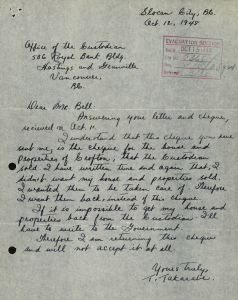 Slocan City, B.C.
Oct 12, 1945
EVACUATION SECTION
Office of the Custodian
506 Royal Bank Bldg.
Hastings and Granville
Vancouver,
B.C.
Dear Mr. Bell:
Answering your letter and cheque,
recieved on Oct. 11.
I understand that this cheque you have
sent me, is the cheque for the house and
properties of Crofton, that the Custodian
sold. I have written time and again that, I
didn't want my house and properties sold,
I wanted them to be taken care of. Therefore
I want them back, instead of this cheque.
If it is impossible to get my house and
properties back from the Custodian, I'll
have to write to the Government.
Therefore I am returning this cheque
and will not accept it at all.
Yours Truly,